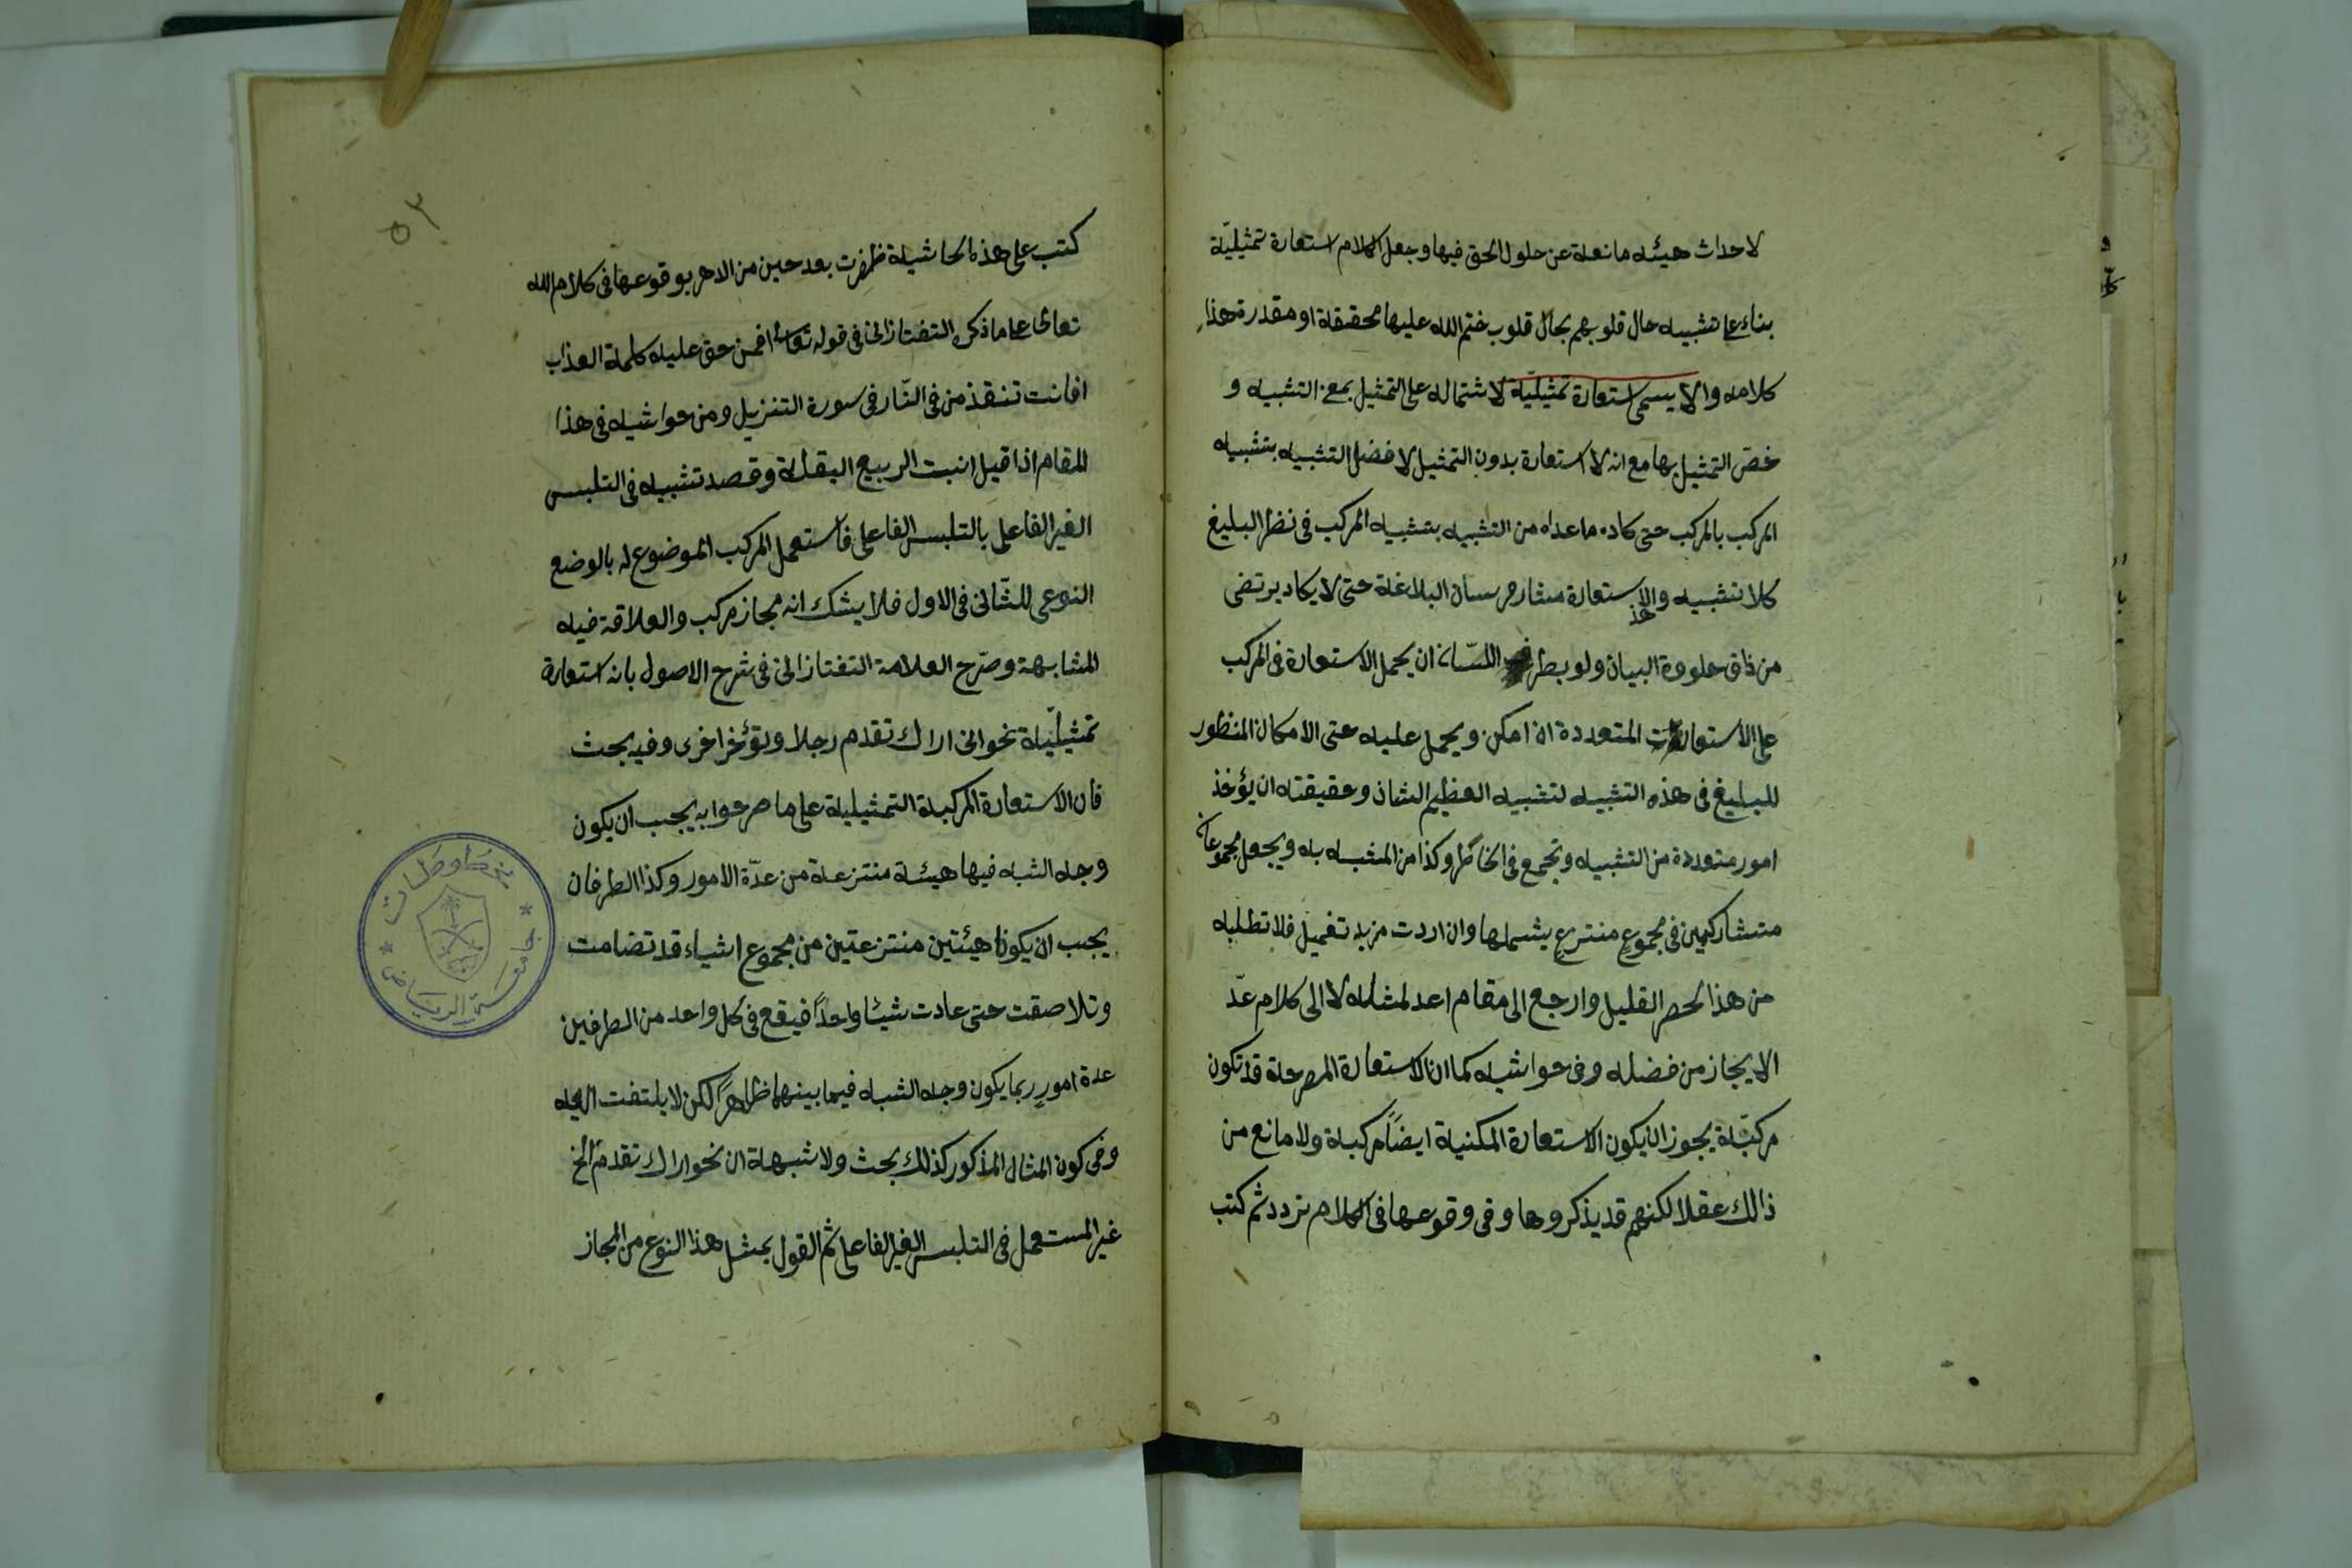 لاحداث هيئه مانعة عن حلول الحق فيها وجعل الكلام استعارة تمثيليّة
بناء على تشبيه حال قلوبهم بحال قلوب ختم الله عليها محققة او مقدرة هذا
كلامه والا يسمى استعارة تمثيليّة لاشتماله على التمثيل بمعنى التشبيه و
خصّ التمثيل بها مع انه لا استعارة بدون التمثيل لا فضل التشبيه بتشبيه
المركب بالمركب حتى كاد ما عداه من التشبيه بتشبيه المركب فى نظر البليغ
كلا تشبيه والاستعارة مثار فرسان البلاغة حتى لا يكاد يرتضى
من ذاق حلووة البيان ولو بطرف اللسّان ان يحمل الاستعارة فى المركب
على الاستعارات المتعددة ان امكن ويحمل عليه حتى الامكان المنظور
للبليغ فى هذه التشبيه لتشبيه العظيم الشان وحقيقته ان يؤخذ
امور متعددة من التشبيه وتجمع فى الخاطر وكذا من المشبه به ويجعل مجموعان
متشاركين فى مجموع منتزع يشملها وان اردت مزيد تفصيل فلا تطلبه
من هذا المحصر القليل وارجع الى مقام اعد لمثله لا الى كلام عدّ
الايجاز من فضله وفى حواشيه كما ان الاستعارة المصرحة قد تكون
مركبّة يجوز ان يكون الاستعارة المكنية ايضاً مركبة ولا مانع من
ذالك عقلا لكنهم قد يذكروها وفى وقوعها فى الكلام تردد ثم كتب
٥٣
كتب على هذه الحاشية ظفرت بعد حين من الدهر بوقوعها فى كلام الله
تعالى على ما ذكره التفتازانى فى قوله تعالى افمن حق عليه كلمة العذاب
افانت تنقذ من فى النّار فى سورة التنزيل ومن حواشيه فى هذا
المقام اذا قيل انبت الربيع البقلة وقصد تشبيه فى التلبس
الغير الفاعلى بالتلبس الفاعلى فاستعمل المركب الموضوع له بالوضع
النوعى للثّانى فى الاول فلا يشك انه مجاز مركب والعلاقة فيه
المشابهة وصرّح العلامة التفتازانى فى شرح الاصول بانه استعارة
تمثيليّة نحو انى اراك تقدم رجلا وتؤخر اخرى وفيه بحث
فان الاستعارة المركبة التمثيلية على ما صرحوا به يجب ان يكون
وجه الشبه فيها هيئة منتزعة من عدّة الامور وكذا الطرفان
يجب ان يكونا هيئتين منتزعتين من مجموع اشياء قد تضامت
وتلاصقت حتى عادت شيئا واحداً فيقع فى كل واحد من الطرفين
عدة امور ربما يكون وجه الشبه فيما بينهما ظاهراً لكن لا يلتفت اليه
وفى كون المثال المذكور كذلك بحث ولا شبهة ان نحو اراك تقدم الخ
غير المستعمل فى التلبس الغير الفاعلى ثم القول بمثل هذا النوع من المجاز
جامعة الرياض
مخطوطات